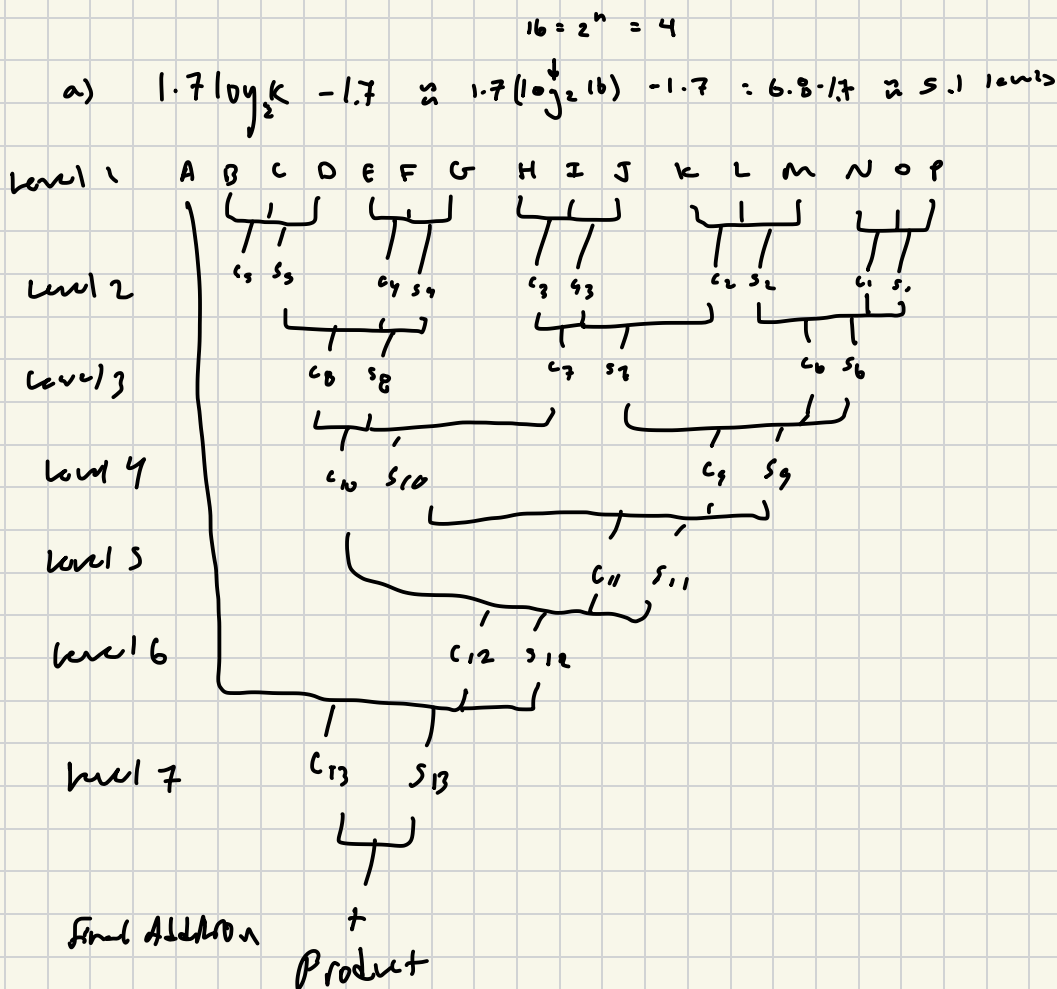 16 = 2ⁿ = 4
a) 1.7 log₂k - 1.7 ≈ 1.7(log₂ 16) - 1.7 = 6.8-1.7 ≈ 5.1 levels
Level 1 A B C D E F G H I J K L M N O P
Level 2 C₅ S₅ C₄ S₄ C₃ S₃ C₂ S₂ C₁ S₁
Level 3 C₈ S₈ C₇ S₇ C₆ S₆
Level 4 C₁₀ S₁₀ C₉ S₉
Level 5 C₁₁ S₁₁
Level 6 C₁₂ S₁₂
Level 7 C₁₃ S₁₃
Final Addition +
Product